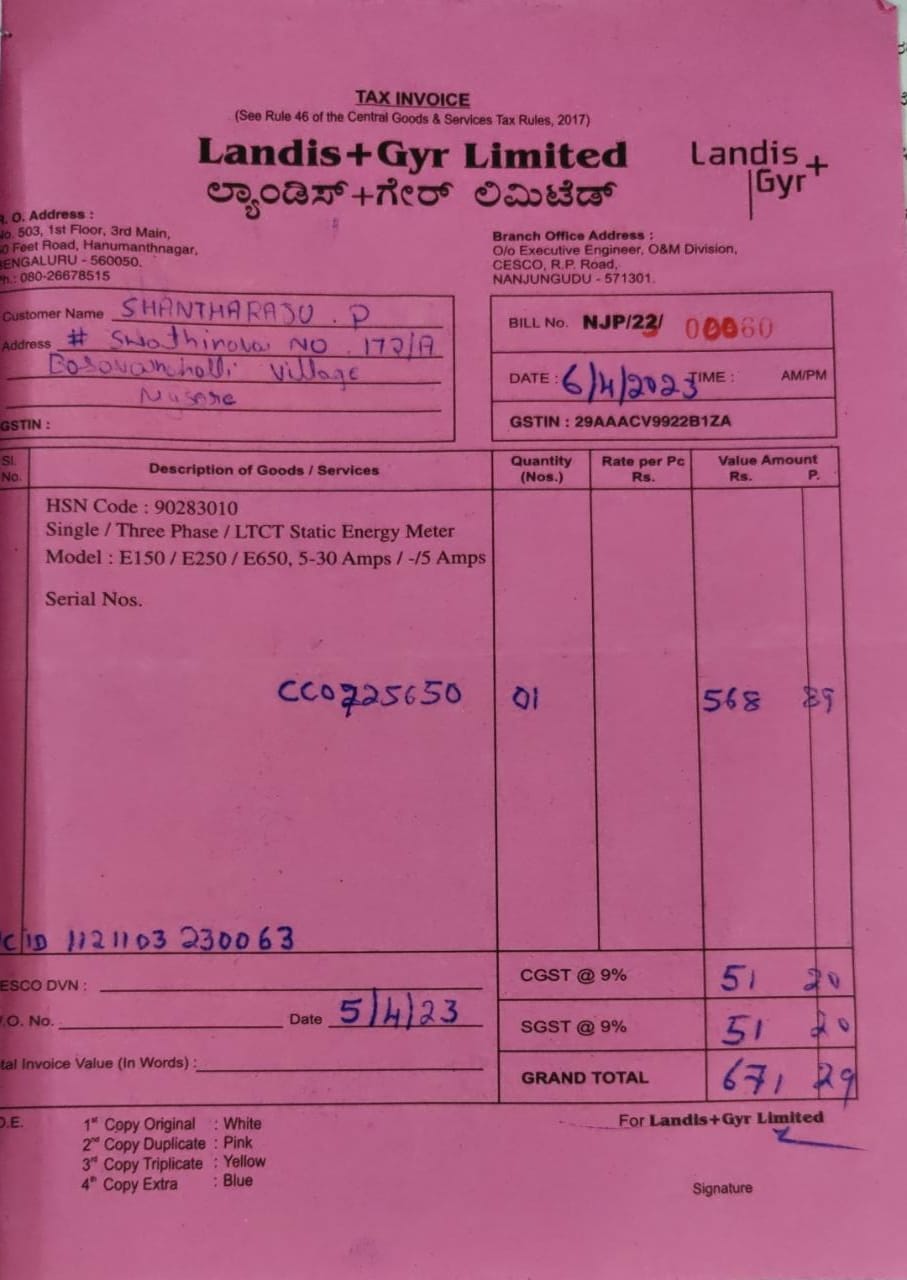 TAX INVOICE
(See Rule 46 of the Central Goods & Services Tax Rules, 2017)
Landis+Gyr Limited
ಲ್ಯಾಂಡಿಸ್+ಗೇರ್ ಲಿಮಿಟೆಡ್
Landis+
Gyr+
R. O. Address :
No. 503, 1st Floor, 3rd Main,
0 Feet Road, Hanumanthnagar,
BENGALURU - 560050.
Ph.: 080-26678515
Branch Office Address :
O/o Executive Engineer, O&M Division,
CESCO, R.P. Road,
NANJUNGUDU - 571301.
Customer Name SHANTHARAJU . P
Address # NO 172/A
Village
GSTIN :
BILL No. NJP/22/ 00060
DATE : 6/4/2023 TIME : AM/PM
GSTIN : 29AAACV9922B1ZA
Sl. No. Description of Goods / Services Quantity (Nos.) Rate per Pc Rs. Value Amount Rs. P.
HSN Code : 90283010
Single / Three Phase / LTCT Static Energy Meter
Model : E150 / E250 / E650, 5-30 Amps / -/5 Amps
Serial Nos.
CC0725650 01 568 89
C ID 1121103 230063
ESCO DVN :
.O. No. Date 5/4/23
tal Invoice Value (In Words) :
CGST @ 9% 51 20
SGST @ 9% 51 20
GRAND TOTAL 671, 29
O.E.
1st Copy Original : White
2nd Copy Duplicate : Pink
3rd Copy Triplicate : Yellow
4th Copy Extra : Blue
For Landis+Gyr Limited
Signature